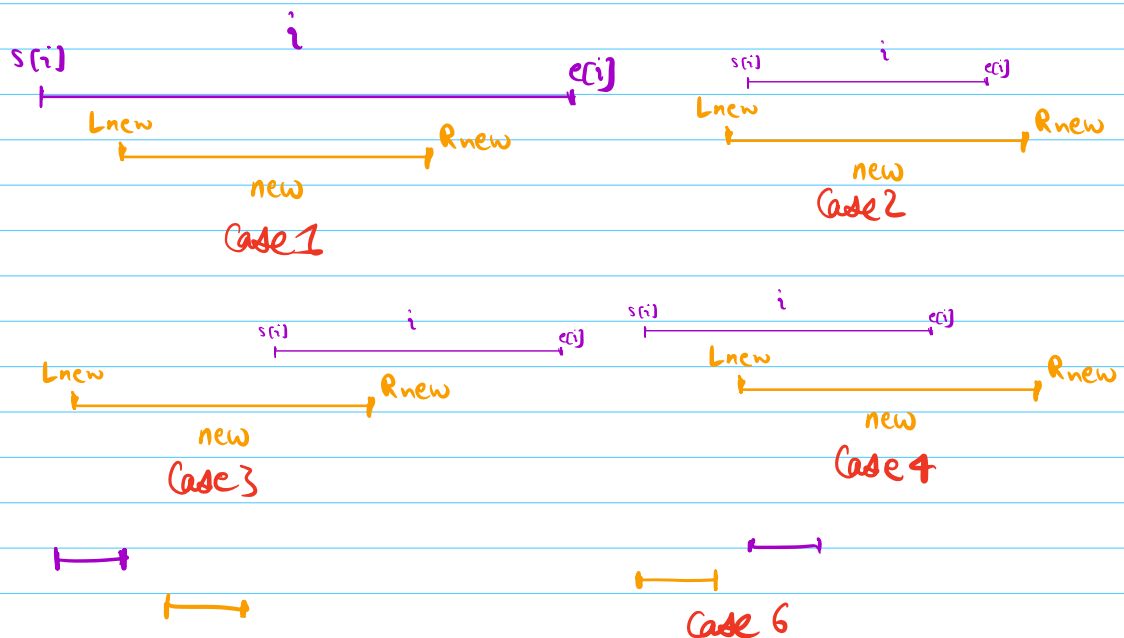 i
s[i] e[i]
Lnew Rnew
new
Case 1
i
s[i] e[i]
Lnew Rnew
new
Case 2
i
s[i] e[i]
Lnew Rnew
new
Case 3
i
s[i] e[i]
Lnew Rnew
new
Case 4
Case 6